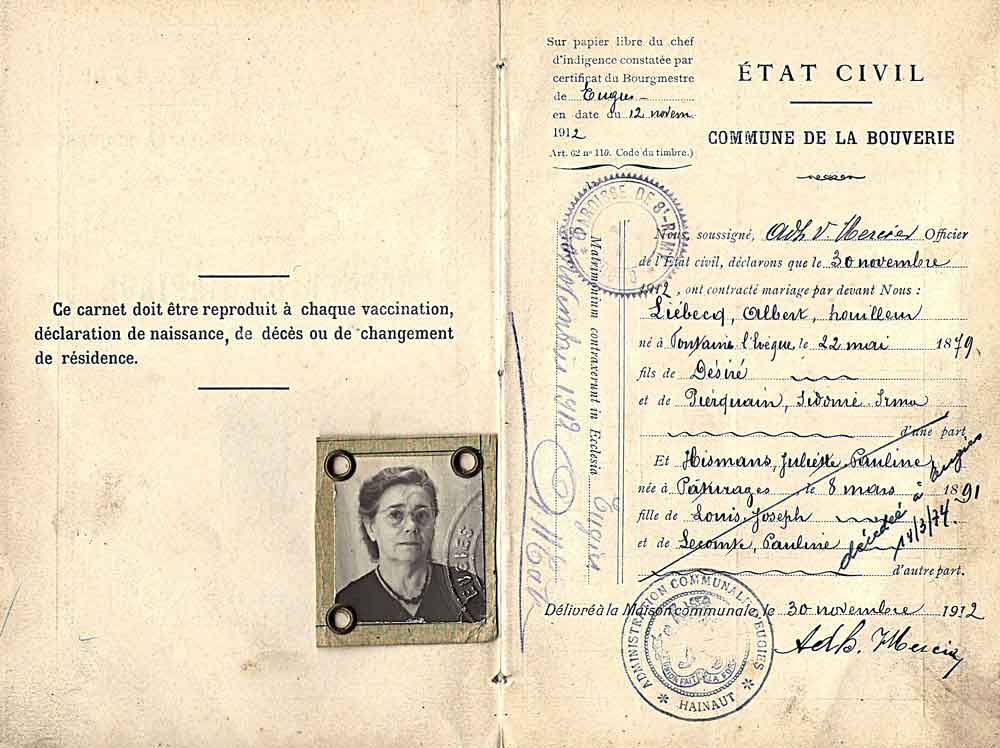 Ce carnet doit être reproduit à chaque vaccination,
déclaration de naissance, de décès ou de changement
de résidence.
EUGIES
Sur papier libre du chef
d'indigence constatée par
certificat du Bourgmestre
de Eugies
en date du 12 novem.
1912
Art. 62 nº 110. Code du timbre.)
ÉTAT CIVIL
COMMUNE DE LA BOUVERIE
PAROISSE DE St-REMI
Matrimonium contraxerunt in Ecclesia Eugies
novembris 1912
Nous, soussigné, Adh V. Mercier Officier
de l'État civil, déclarons que le 30 novembre
1912, ont contracté mariage par devant Nous :
Liébecq, Albert, houilleur
né à Fontaine l'Evêque le 22 mai 1879.
fils de Désiré
et de Pierquain, Sidonie Irma
d'une part
Et Hismans, Juliette Pauline
née à Pâturages le 8 mars 1891
fille de Louis Joseph
et de Lecomte, Pauline
d'autre part.
décédée à Eugies
14/3/74.
Délivré à la Maison communale, le 30 novembre 1912
Adh. Mercier
ADMINISTRATION COMMUNALE D'EUGIES
L'UNION FAIT LA FORCE
* HAINAUT *